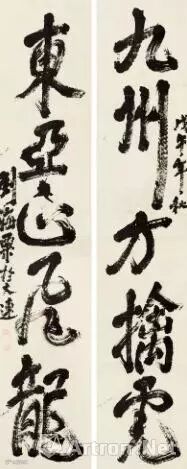 九州方擒
戊午年秋
東亞正龍
劉海粟於大連
Artron.Net